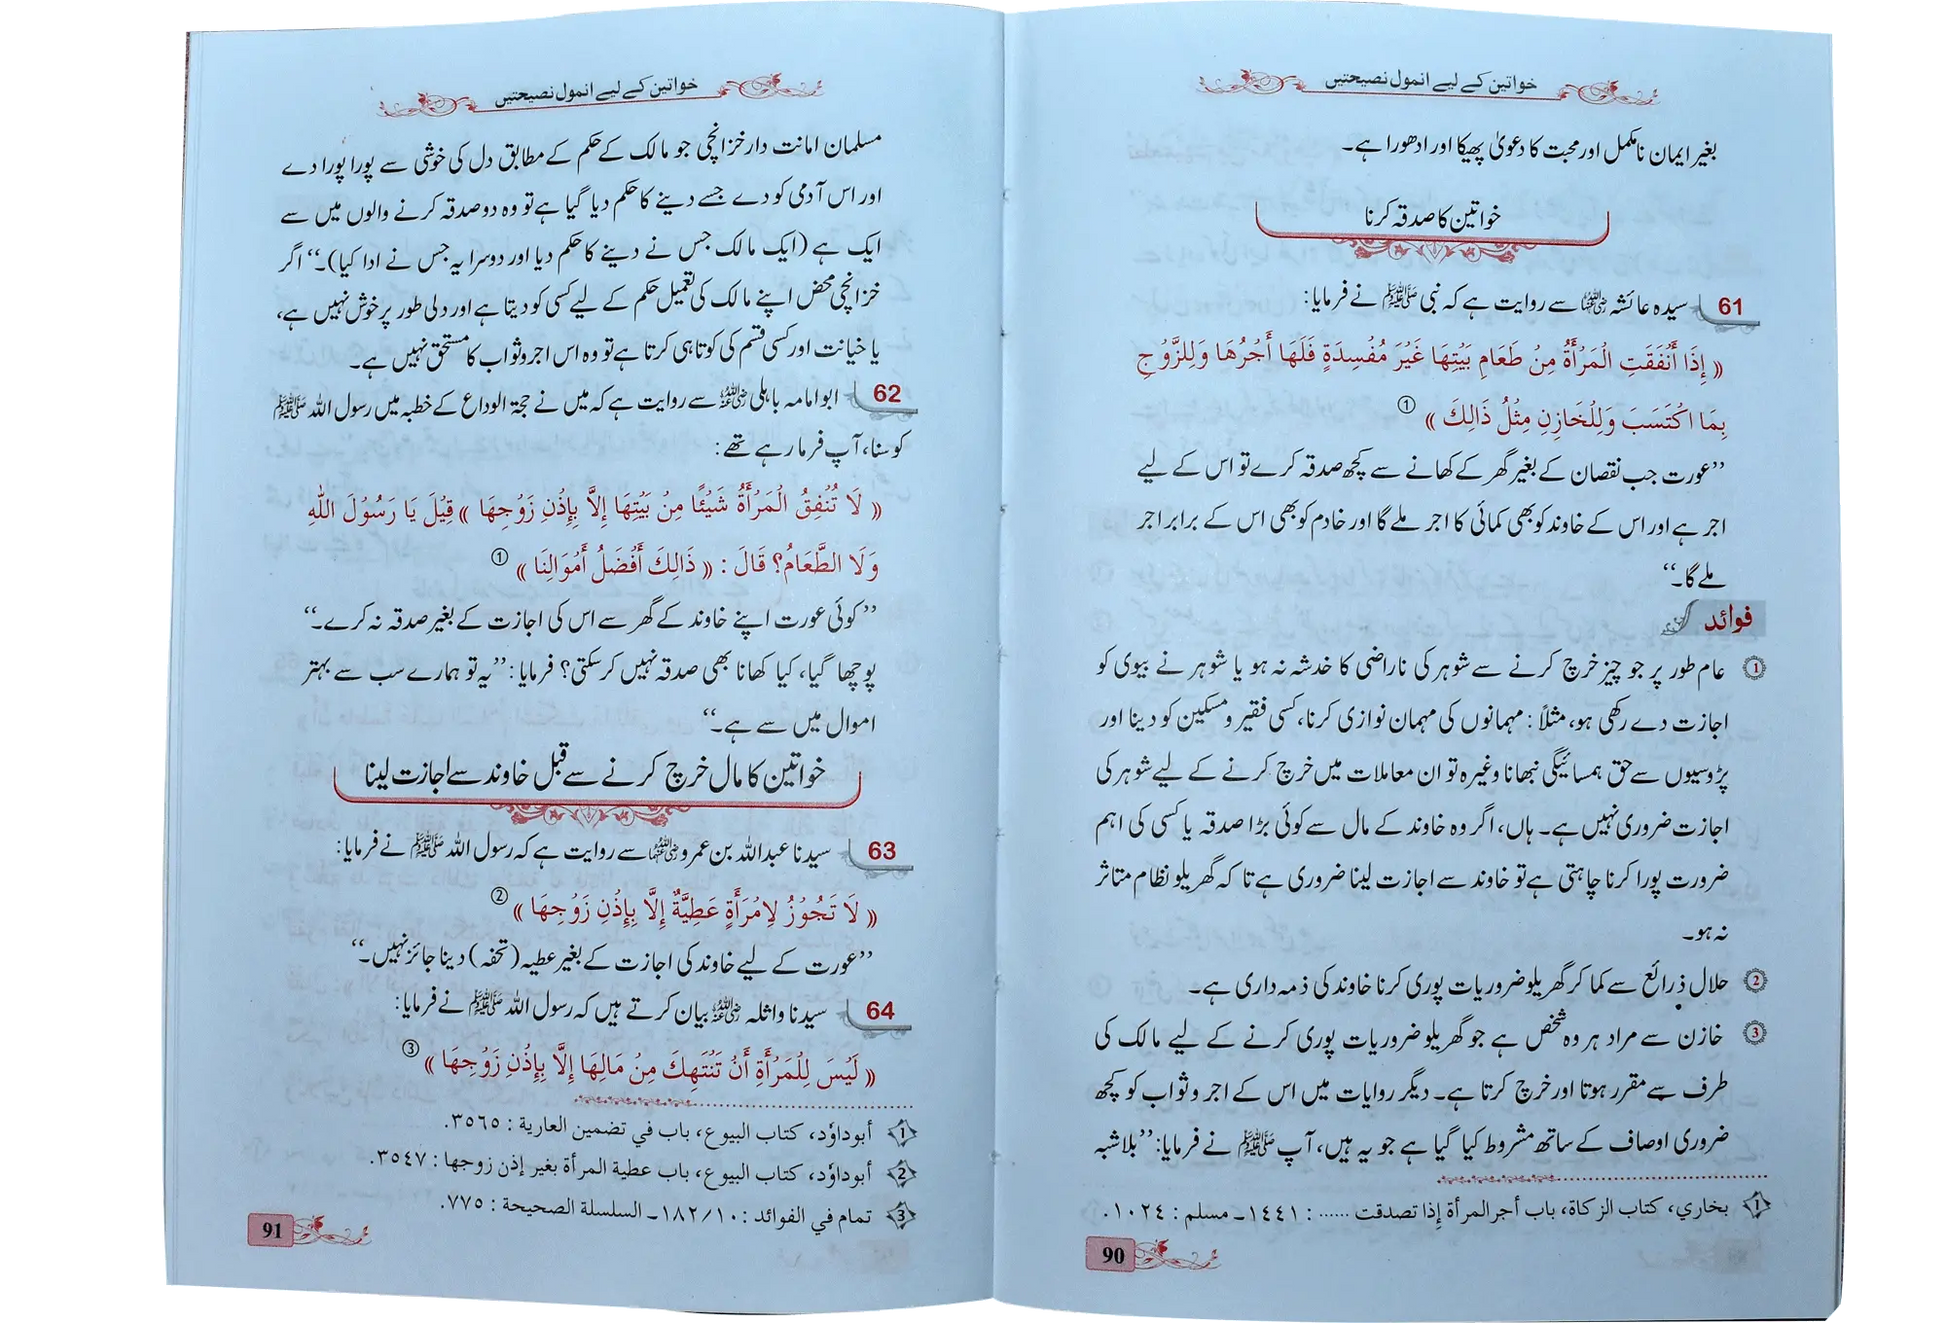 خواتین کے لیے انمول نصیحتیں
بغیر ایمان نامکمل اور محبت کا دعویٰ پھیکا اور ادھورا ہے۔
خواتین کا صدقہ کرنا
61 سیدہ عائشہ رضی اللہ عنہا سے روایت ہے کہ نبی ﷺ نے فرمایا:
« إِذَا أَنْفَقَتِ الْمَرْأَةُ مِنْ طَعَامِ بَيْتِهَا غَيْرَ مُفْسِدَةٍ فَلَهَا أَجْرُهَا وَلِلزَّوْجِ
بِمَا اكْتَسَبَ وَلِلْخَازِنِ مِثْلُ ذَالِكَ » ①
’’عورت جب نقصان کے بغیر گھر کے کھانے سے کچھ صدقہ کرے تو اس کے لیے
اجر ہے اور اس کے خاوند کو بھی کمائی کا اجر ملے گا اور خادم کو بھی اس کے برابر اجر
ملے گا۔‘‘
فوائد
① عام طور پر جو چیز خرچ کرنے سے شوہر کی ناراضی کا خدشہ نہ ہو یا شوہر نے بیوی کو
اجازت دے رکھی ہو، مثلاً: مہمانوں کی مہمان نوازی کرنا، کسی فقیر و مسکین کو دینا اور
پڑوسیوں سے حق ہمسائیگی نبھانا وغیرہ تو ان معاملات میں خرچ کرنے کے لیے شوہر کی
اجازت ضروری نہیں ہے۔ ہاں، اگر وہ خاوند کے مال سے کوئی بڑا صدقہ یا کسی کی اہم
ضرورت پورا کرنا چاہتی ہے تو خاوند سے اجازت لینا ضروری ہے تا کہ گھریلو نظام متاثر
نہ ہو۔
② حلال ذرائع سے کما کر گھریلو ضروریات پوری کرنا خاوند کی ذمہ داری ہے۔
③ خازن سے مراد ہر وہ شخص ہے جو گھریلو ضروریات پوری کرنے کے لیے مالک کی
طرف سے مقرر ہوتا اور خرچ کرتا ہے۔ دیگر روایات میں اس کے اجر و ثواب کو کچھ
ضروری اوصاف کے ساتھ مشروط کیا گیا ہے جو یہ ہیں، آپ ﷺ نے فرمایا: ’’بلاشبہ
① بخاري، كتاب الزكاة، باب أجر المرأة إذا تصدقت ...... : ١٤٤١ـ مسلم : ١٠٢٤.
90
خواتین کے لیے انمول نصیحتیں
مسلمان امانت دار خزانچی جو مالک کے حکم کے مطابق دل کی خوشی سے پورا پورا دے
اور اس آدمی کو دے جسے دینے کا حکم دیا گیا ہے تو وہ دو صدقہ کرنے والوں میں سے
ایک ہے (ایک مالک جس نے دینے کا حکم دیا اور دوسرا یہ جس نے ادا کیا)۔‘‘ اگر
خزانچی محض اپنے مالک کی تعمیل حکم کے لیے کسی کو دیتا ہے اور دلی طور پر خوش نہیں ہے،
یا خیانت اور کسی قسم کی کوتاہی کرتا ہے تو وہ اس اجر و ثواب کا مستحق نہیں ہے۔
62 ابو امامہ باہلی رضی اللہ عنہ سے روایت ہے کہ میں نے حجۃ الوداع کے خطبہ میں رسول اللہ ﷺ
کو سنا، آپ فرما رہے تھے:
« لَا تُنْفِقُ الْمَرْأَةُ شَيْئًا مِنْ بَيْتِهَا إِلَّا بِإِذْنِ زَوْجِهَا » قِيْلَ يَا رَسُوْلَ اللهِ
وَلَا الطَّعَامُ؟ قَالَ : « ذَالِكَ أَفْضَلُ أَمْوَالِنَا » ①
’’کوئی عورت اپنے خاوند کے گھر سے اس کی اجازت کے بغیر صدقہ نہ کرے۔‘‘
پوچھا گیا، کیا کھانا بھی صدقہ نہیں کر سکتی؟ فرمایا: ’’یہ تو ہمارے سب سے بہتر
اموال میں سے ہے۔‘‘
خواتین کا مال خرچ کرنے سے قبل خاوند سے اجازت لینا
63 سیدنا عبداللہ بن عمرو رضی اللہ عنہما سے روایت ہے کہ رسول اللہ ﷺ نے فرمایا:
« لَا تَجُوْزُ لِامْرَأَةٍ عَطِيَّةٌ إِلَّا بِإِذْنِ زَوْجِهَا » ②
’’عورت کے لیے خاوند کی اجازت کے بغیر عطیہ (تحفہ) دینا جائز نہیں۔‘‘
64 سیدنا واثلہ رضی اللہ عنہ بیان کرتے ہیں کہ رسول اللہ ﷺ نے فرمایا:
« لَيْسَ لِلْمَرْأَةِ أَنْ تَنْتَهِكَ مِنْ مَالِهَا إِلَّا بِإِذْنِ زَوْجِهَا » ③
① أبوداوٗد، كتاب البيوع، باب في تضمين العارية : ٣٥٦٥.
② أبوداوٗد، كتاب البيوع، باب عطية المرأة بغير إذن زوجها : ٣٥٤٧.
③ تمام في الفوائد : ١٨٢/١٠ـ السلسلة الصحيحة : ٧٧٥.
91